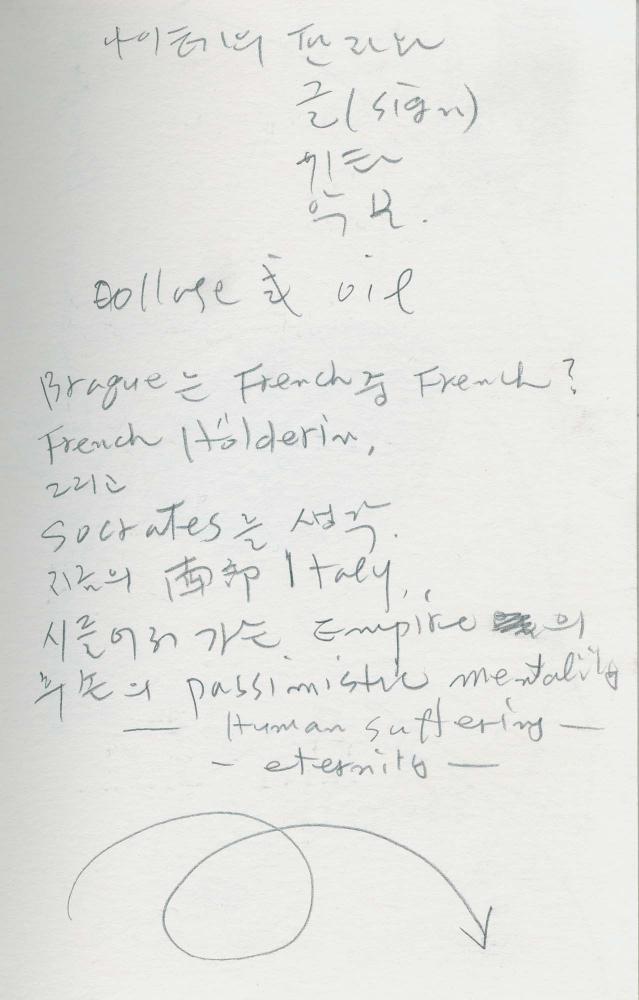 글(sign)
기타
악보.
oil
Braque는 French 중 French?
French Hölderin,
그리고
Socrates를 생각.
지금의 南部 Italy,
시들어져 가는 Empire 의
후손의 passimistic mentality
— Human suffering —
— eternity —